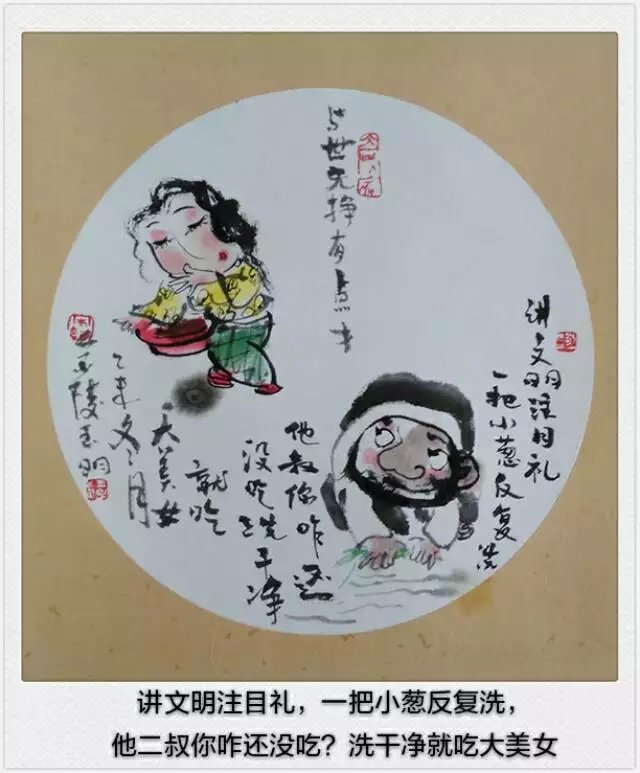 与世无挣有点
讲文明注目礼
一把小葱反复洗
他叔你咋还
没吃洗干净
就吃
大美女
乙未冬月
金陵
讲文明注目礼，一把小葱反复洗，
他二叔你咋还没吃？洗干净就吃大美女